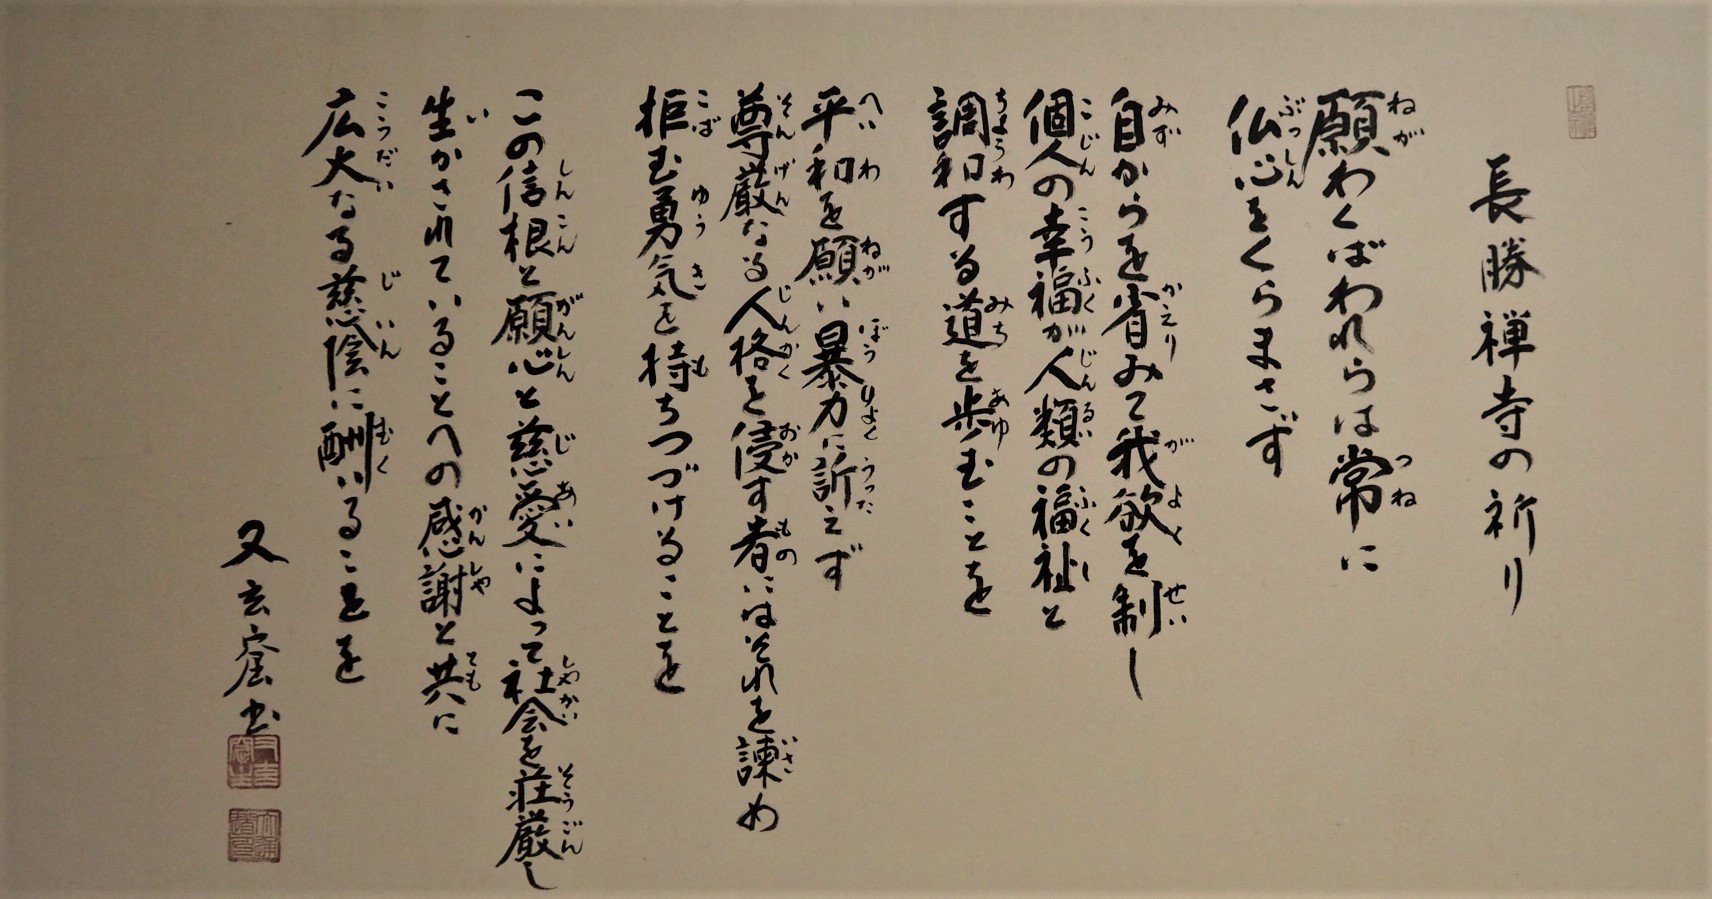 長勝禅寺の祈り
願わくばわれらは常に
仏心をくらまさず
自からを省みて我欲を制し
個人の幸福が人類の福祉と
調和する道を歩むことを
平和を願い暴力に訴えず
尊厳なる人格を侵す者にはそれを諫め
拒む勇気を持ちつづけることを
この信根と願心と慈愛によって社会を荘厳し
生かされていることへの感謝と共に
広大なる慈陰に酬いることを
又玄窟書